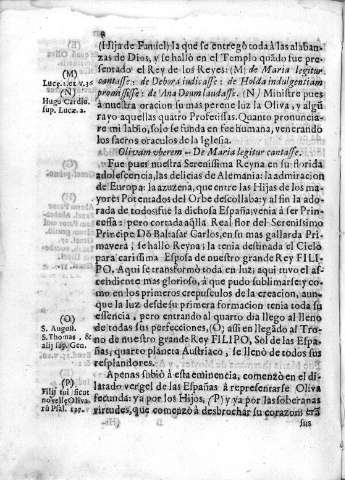 8
(Hija de Fanuel) la que se entregò toda à las alaban-
zas de Dios, y se hallò en el Templo quãdo fue pre-
sentado el Rey de los Reyes: (M) de Maria legitur
cantasse: de Debora iudicasse: de Holda indulgentiam
promisisse: de Ana Deum laudasse. (N) Ministre pues
à nuestra oracion su mas perene luz la Oliva, y algũ
rayo aquellas quatro Profetisas. Quanto pronuncia-
re mi labio, solo se funda en fee humana, venerando
los sacros oraculos de la Iglesia.
Olivam vberem - De Maria legitur cantasse.
Fue pues nuestra Serenissima Reyna en su florida
adolescencia, las delicias de Alemania: la admiracion
de Europa: la azuzena, que entre las Hijas de los ma-
yores Potentados del Orbe descollaba: y al fin la ado-
rada de todos fuè la dichosa España venia à ser Prin-
cesa: pero cortada aqlla Real flor del Serenissimo
Principe Dõ Baltasar Carlos, en su mas gallarda Pri-
mavera, se hallò Reyna; la tenia destinada el Cielo
para carissima Esposa de nuestro grande Rey FILI-
PO. Aqui se transformò toda en luz; aqui tuvo el as-
cendiente mas glorioso, à que pudo sublimarse: y co-
mo en los primeros crepusculos de la creacion, aun-
que la luz desde su primera formacion tenia toda su
essencia, pero entrando al quarto dia llego al lleno
de todas sus perfecciones, (O) assi en llegãdo al Tro-
no de nuestro grande Rey FILIPO, Sol de las Espa-
ñas, quarto planeta Austriaco, se llenò de todos sus
resplandores.
Apenas subiò à esta eminencia, comenzò en el di-
latado vergel de las Españas à representarse Oliva
fecunda: ya por los Hijos, (P) y ya por las soberanas
virtudes, que comenzò à desbrochar su corazon: erã
sus
(M)
Luc. 2.
(N)
Hugo Cardin.
sup. Luc. 2.
(O)
S. August.
S. Thomas, &
alij sup. Gen.
(P)
Filij tui sicut
novellæ Oliva-
rũ Psal. 127.